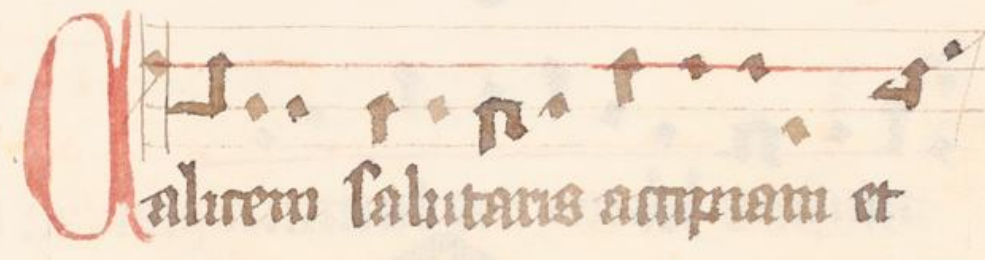 Calicem salutaris accipiam et